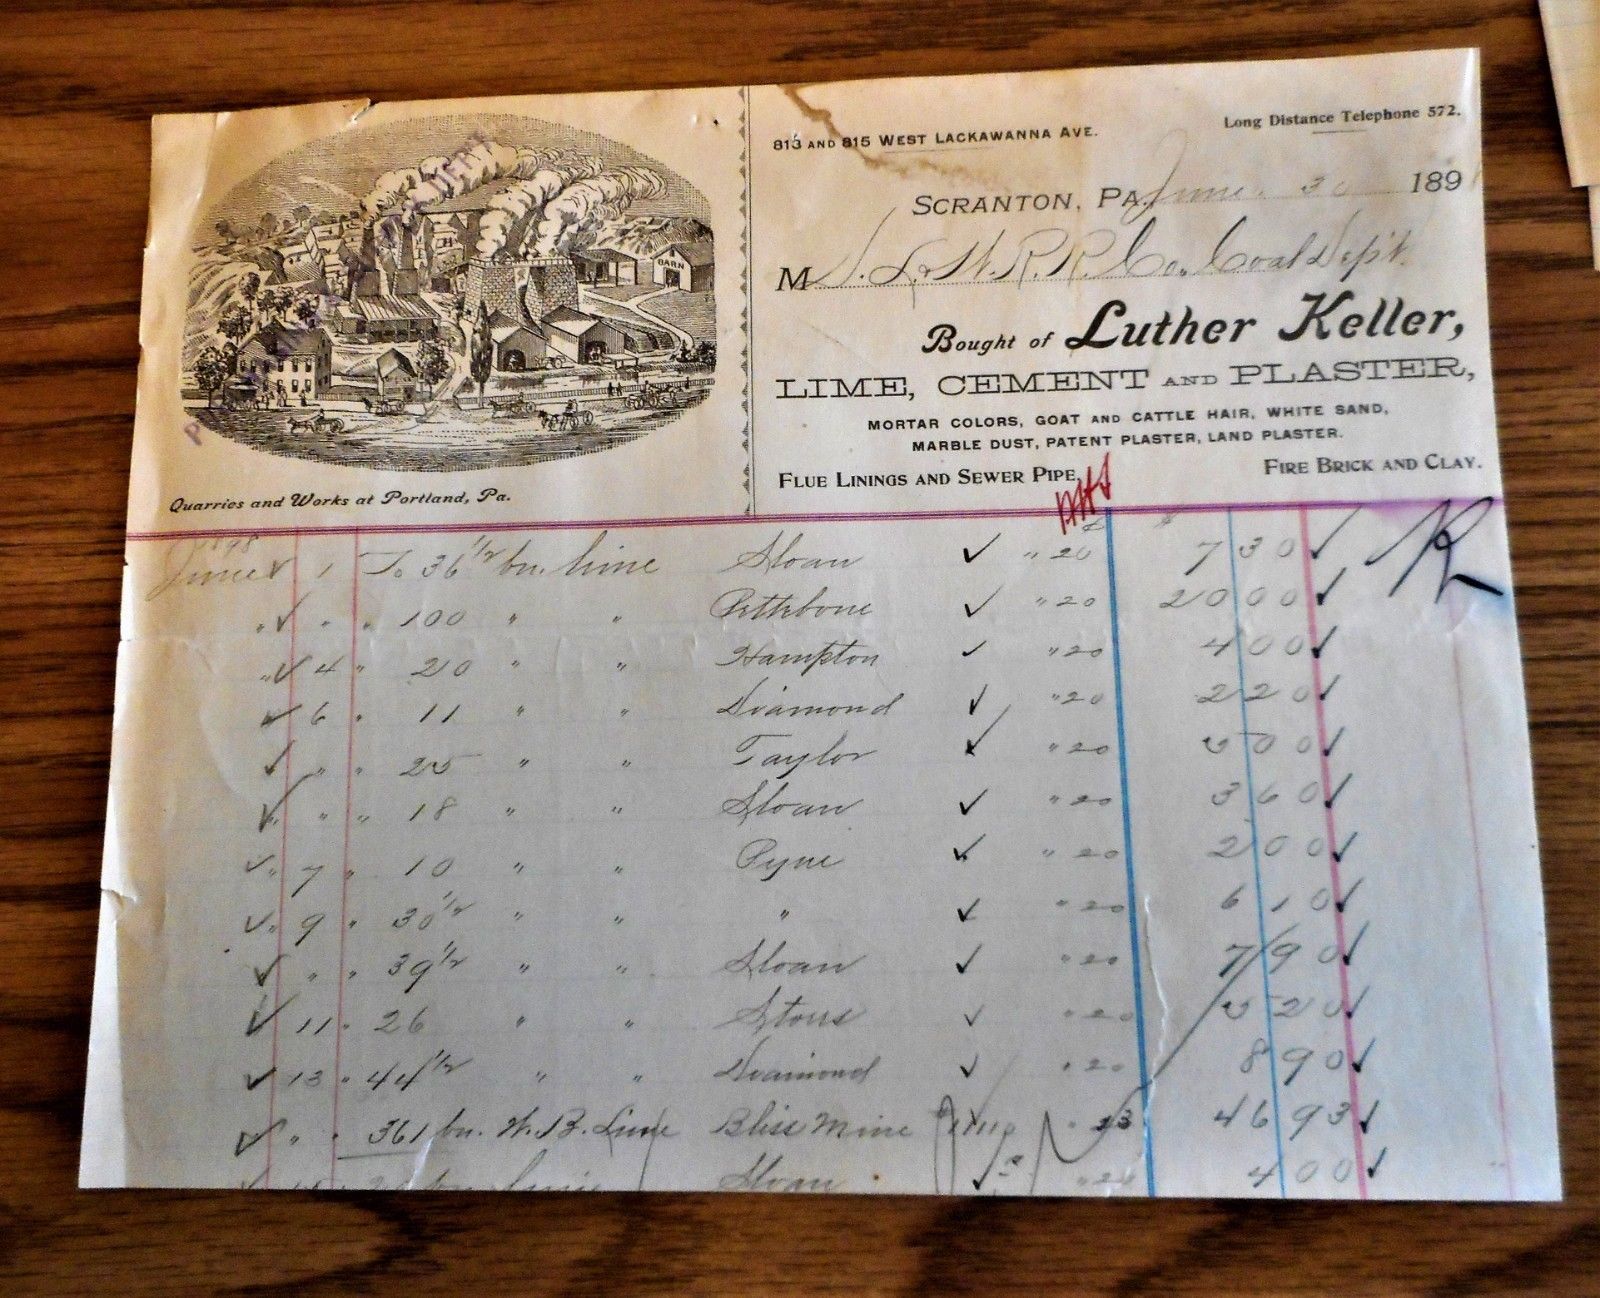 BARN
Quarries and Works at Portland, Pa.
813 AND 815 WEST LACKAWANNA AVE.
Long Distance Telephone 572.
SCRANTON, PA. June 30 189
M D. L. & W. R. R. Co. Coal Dep't.
Bought of Luther Keller,
LIME, CEMENT AND PLASTER,
MORTAR COLORS, GOAT AND CATTLE HAIR, WHITE SAND,
MARBLE DUST, PATENT PLASTER, LAND PLASTER.
FLUE LININGS AND SEWER PIPE,
FIRE BRICK AND CLAY.
1898
June ✓ 1 To 36 1/2 bu. Lime Sloan ✓ " 20 7 30 ✓
" ✓ " " 100 " " ✓ " 20 20 00 ✓
" ✓ 4 " 20 " " Hampton ✓ " 20 4 00 ✓
✓ 6 " 11 " " Diamond ✓ " 20 2 20 ✓
✓ " " 25 " " Taylor ✓ " 20 5 00 ✓
✓ " " 18 " " Sloan ✓ " 20 3 60 ✓
✓ " 7 " 10 " " Pyne ✓ " 20 2 00 ✓
✓ " 9 " 30 1/2 " " " ✓ " 20 6 10 ✓
✓ " " 39 1/2 " " Sloan ✓ " 20 7 90 ✓
✓ 11 " 26 " " Storrs ✓ " 20 5 20 ✓
✓ 13 " 44 1/2 " " Diamond ✓ " 20 8 90 ✓
✓ " " 361 bu. W. B. Lime Bliss Mine " 13 46 93 ✓
bu Lime Sloan ✓ 4 00 ✓